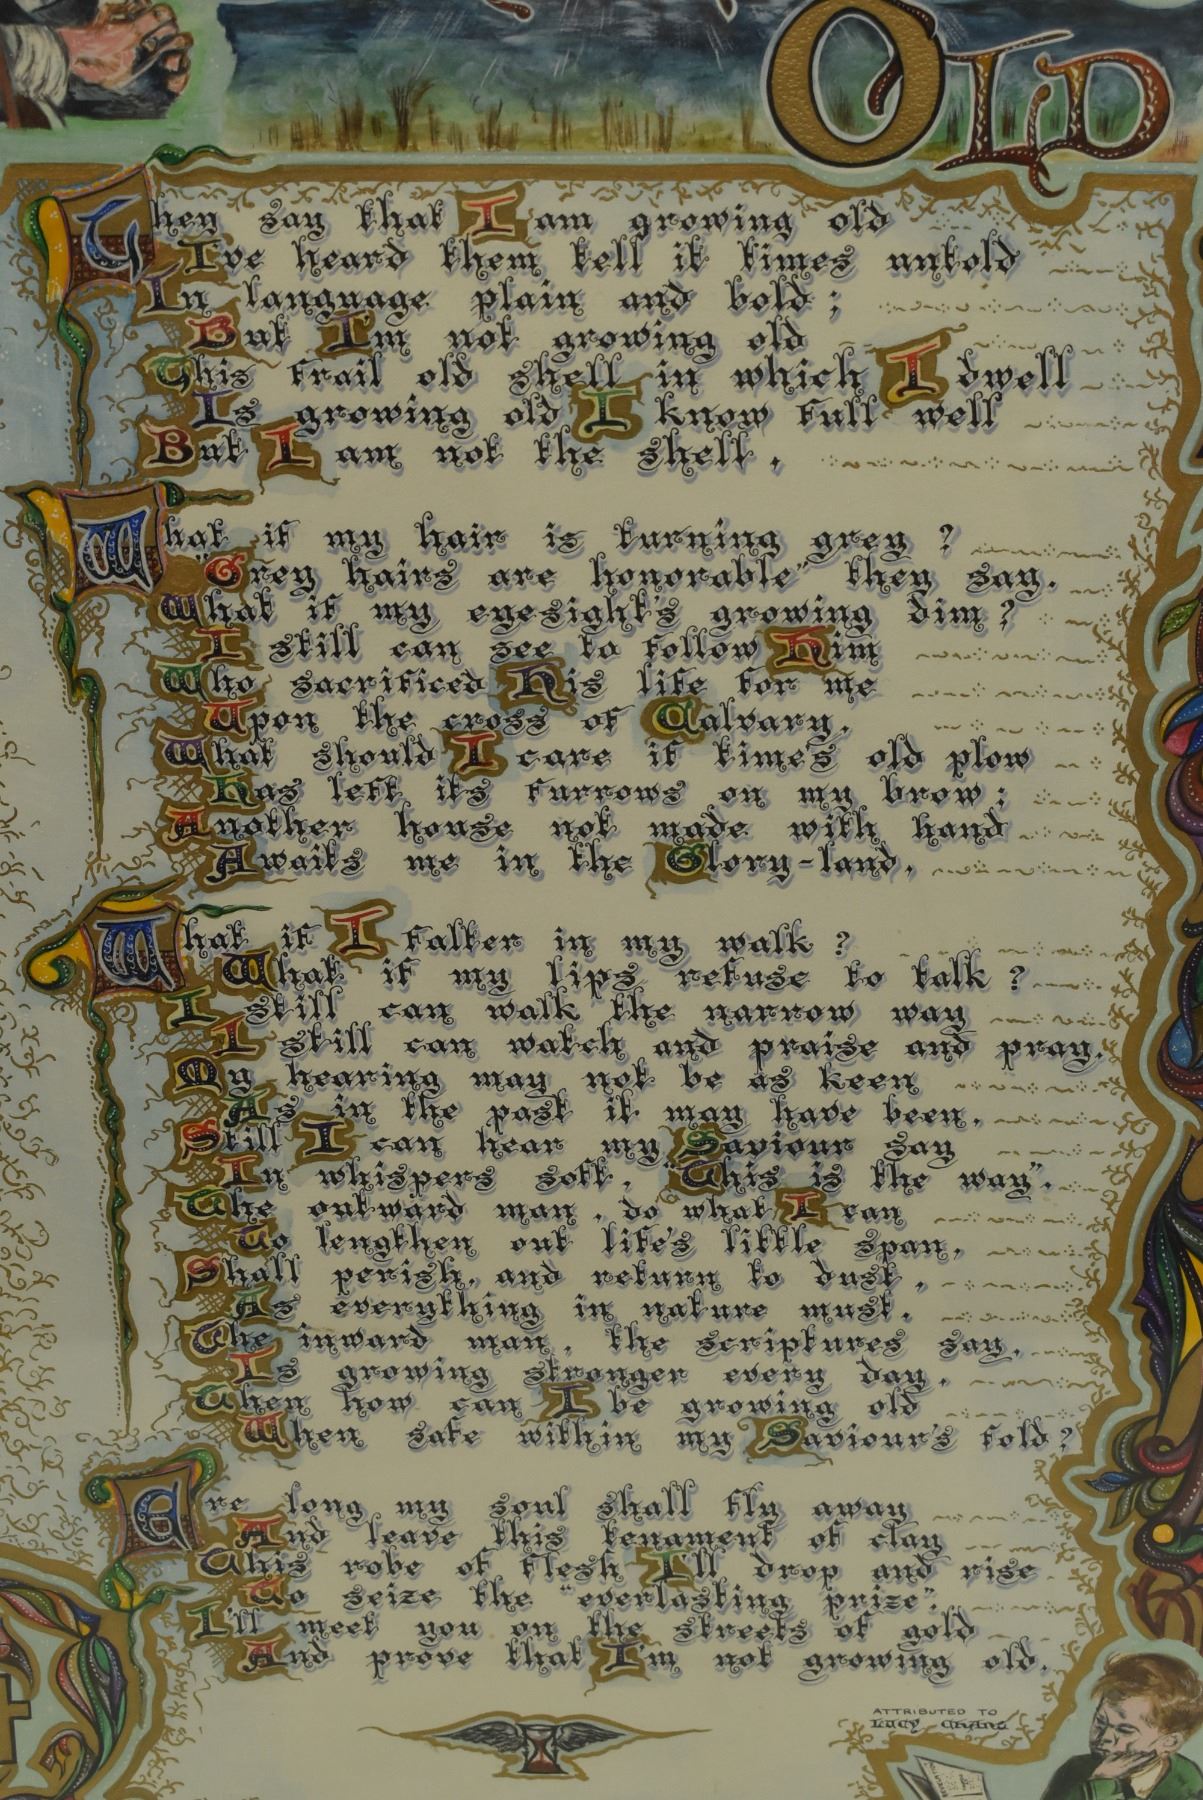 OLD
They say that I am growing old
I've heard them tell it times untold
In language plain and bold;
But I'm not growing old
This frail old shell in which I dwell
Is growing old I know full well
But I am not the shell.
What if my hair is turning grey?
"Grey hairs are honorable" they say.
What if my eyesight's growing dim?
I still can see to follow Him
Who sacrificed His life for me
Upon the cross of Calvary.
What should I care if time's old plow
Has left its furrows on my brow;
Another house not made with hand
Awaits me in the Glory-land.
What if I falter in my walk?
What if my lips refuse to talk?
I still can walk the narrow way
I still can watch and praise and pray.
My hearing may not be as keen
As in the past it may have been,
Still I can hear my Saviour say
In whispers soft, "This is the way".
The outward man, do what I can
To lengthen out life's little span,
Shall perish, and return to dust,
As everything in nature must.
The inward man, the scriptures say,
Is growing stronger every day.
Then how can I be growing old
When safe within my Saviour's fold?
Ere long my soul shall fly away
And leave this tenament of clay
This robe of flesh I'll drop and rise
To seize the "everlasting prize".
I'll meet you on the streets of gold
And prove that I'm not growing old.
ATTRIBUTED TO
LUCY